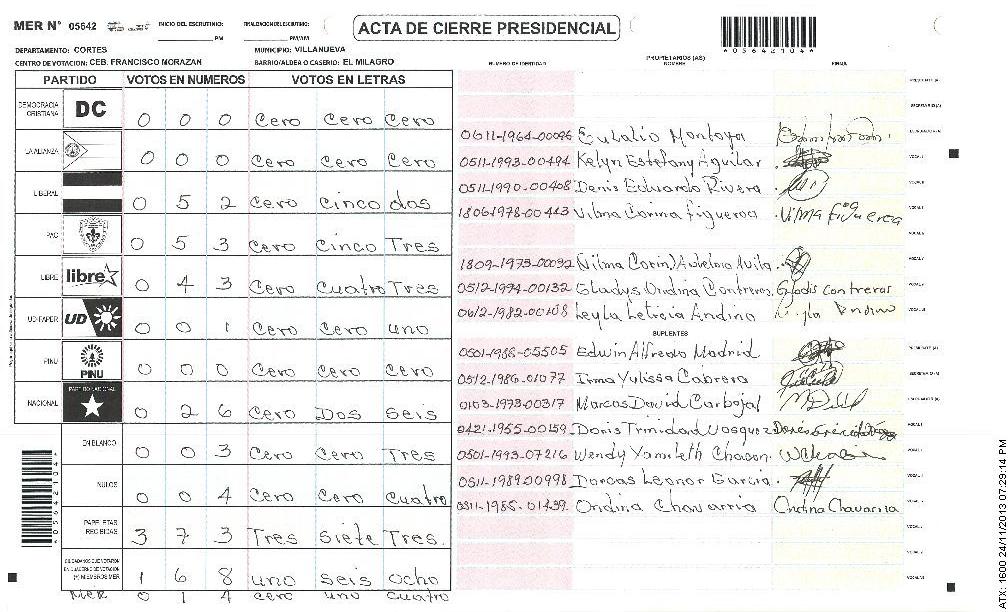 MER N° 05642 INICIO DEL ESCRUTINIO: PM FINALIZACION DEL ESCRUTINIO: PM/AM
ACTA DE CIERRE PRESIDENCIAL
*05642104*
DEPARTAMENTO: CORTES MUNICIPIO: VILLANUEVA
CENTRO DE VOTACION: CEB. FRANCISCO MORAZAN BARRIO/ALDEA O CASERIO: EL MILAGRO
PARTIDO VOTOS EN NUMEROS VOTOS EN LETRAS
DEMOCRACIA CRISTIANA DC 0 0 0 Cero Cero Cero
LA ALIANZA 0 0 0 Cero Cero Cero
LIBERAL 0 5 2 Cero Cinco dos
PAC 0 5 3 Cero Cinco Tres
LIBRE libre 0 4 3 Cero Cuatro Tres
UD-FAPER UD 0 0 1 Cero Cero uno
PINU PINU 0 0 0 Cero Cero Cero
NACIONAL PARTIDO NACIONAL 0 2 6 Cero Dos Seis
EN BLANCO 0 0 3 Cero Cero Tres
NULOS 0 0 4 Cero Cero Cuatro
PAPELETAS RECIBIDAS 3 7 3 Tres Siete Tres.
CIUDADANOS QUE VOTARON EN CUADERNO DE VOTACION (+) MIEMBROS MER 1 6 8 uno seis ocho
MER 0 1 4 cero uno cuatro
NUMERO DE IDENTIDAD PROPIETARIOS (AS) NOMBRE FIRMA
PRESIDENTE (A)
SECRETARIO (A)
0611-1964-00096 Eulalio Montoya ESCRUTADOR (A)
0511-1993-00494 Kelyn Estefany Aguilar VOCAL I
0511-1990-00408 Denis Eduardo Rivera
1806-1978-00413 Vilma Corina figueroa Vilma figueroa
1809-1973-00032
0512-1994-00132 Gladys Ondina Contreras Gladis Contreras
0612-1982-00108 Leyla Leticia Andino
SUPLENTES
0501-1986-05505 Edwin Alfredo Madrid PRESIDENTE (A)
0512-1986-01077 Irma Yulissa Cabrera SECRETARIO (A)
0103-1973-00317 Marcos David Carbajal ESCRUTADOR (A)
0421-1955-00159 Doris Trinidad Vasquez VOCAL I
0501-1993-07216 Wendy Yamileth Chacon.
0511-1989-00998 Dorcas Leonor Garcia.
0511-1985-01439 Ondina Chavarria Ondina Chavarria
*05642104*
ATX: 1600 24/11/2013 07:29:14 PM